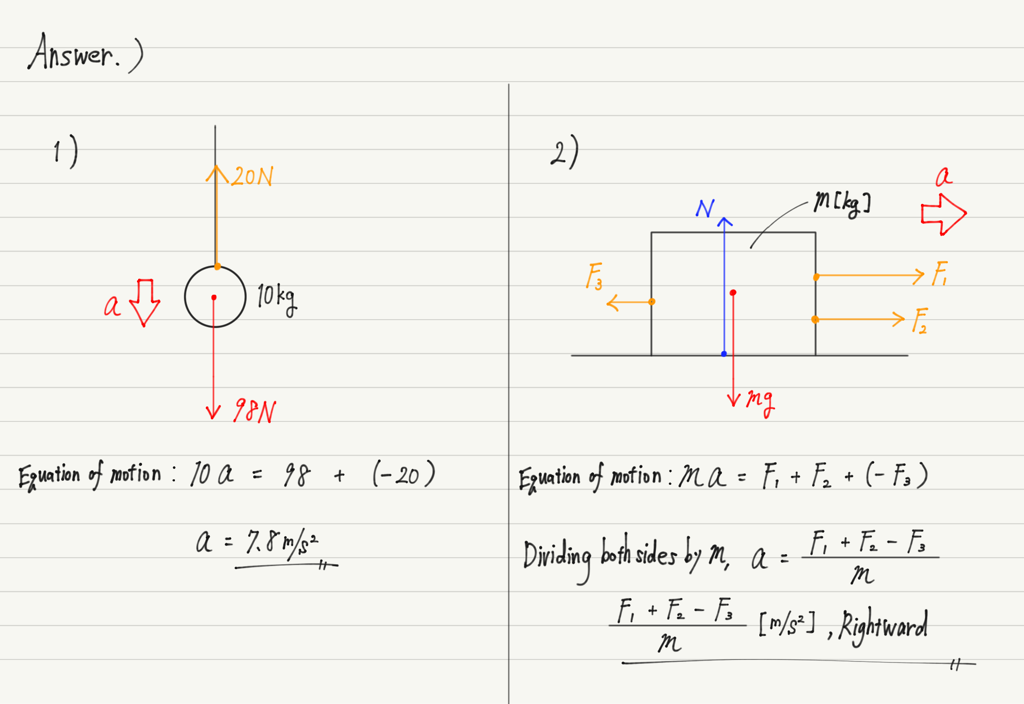 Answer.)
1)
20N
a
10kg
98N
Equation of motion : 10a = 98 + (-20)
a = 7.8 m/s²
2)
a
m[kg]
N
F₃
F₁
F₂
mg
Equation of motion : ma = F₁ + F₂ + (-F₃)
Dividing both sides by m, a = (F₁ + F₂ - F₃)/m
(F₁ + F₂ - F₃)/m [m/s²], Rightward